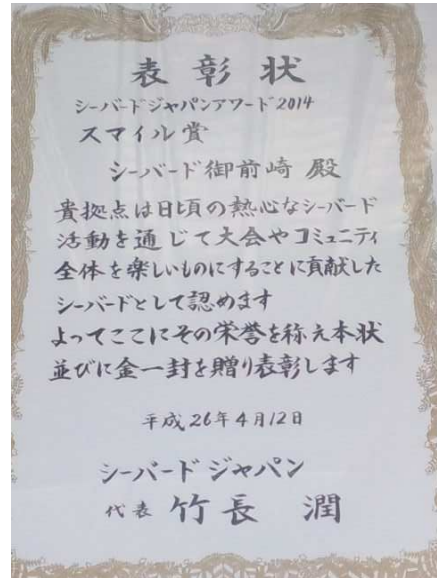 表彰状
シーバードジャパンアワード2014
スマイル賞
シーバード御前崎 殿
貴拠点は日頃の熱心なシーバード
活動を通じて大会やコミュニティ
全体を楽しいものにすることに貢献した
シーバードとして認めます
よってここにその栄誉を称え本状
並びに金一封を贈り表彰します
平成26年4月12日
シーバードジャパン
代表 竹長 潤